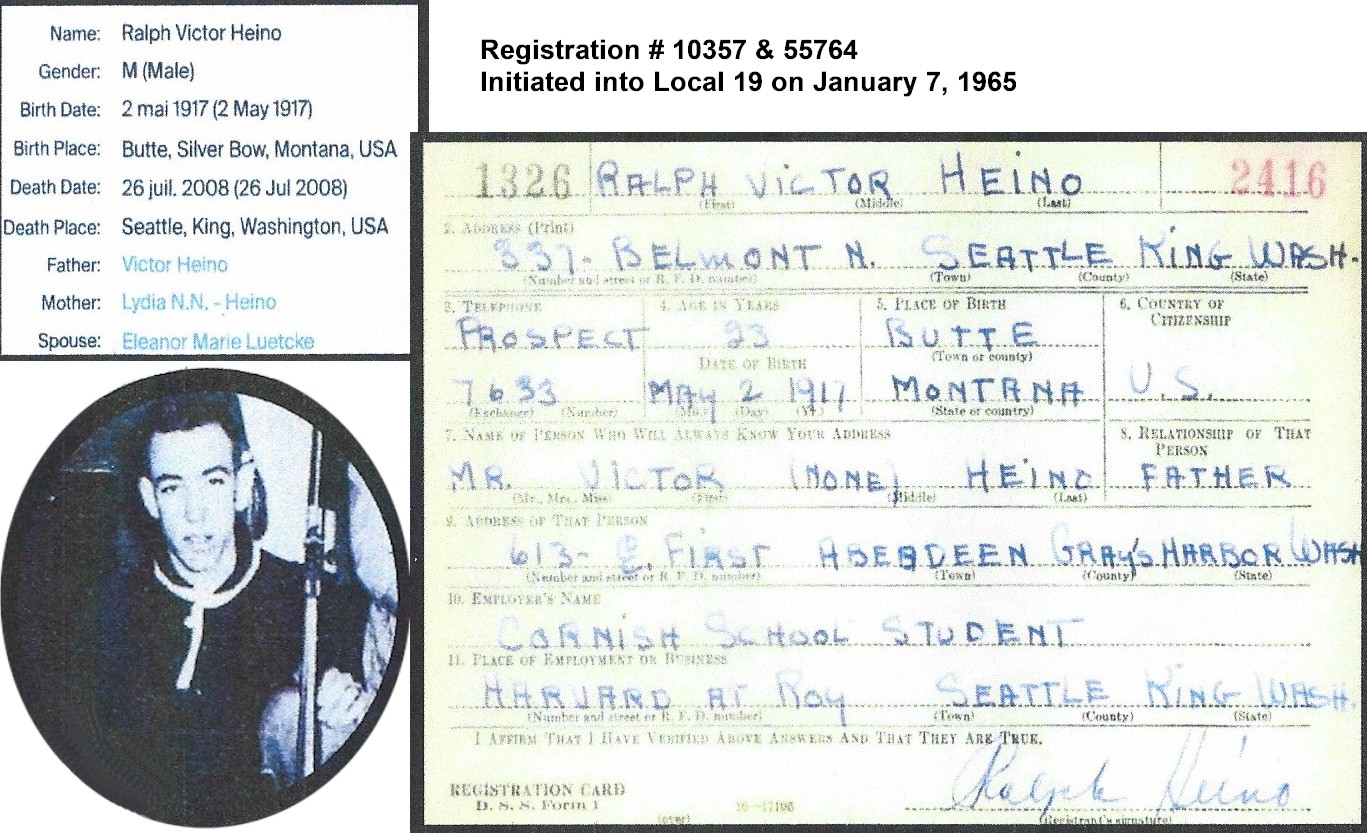 Name: Ralph Victor Heino
Gender: M (Male)
Birth Date: 2 mai 1917 (2 May 1917)
Birth Place: Butte, Silver Bow, Montana, USA
Death Date: 26 juil. 2008 (26 Jul 2008)
Death Place: Seattle, King, Washington, USA
Father: Victor Heino
Mother: Lydia N.N. - Heino
Spouse: Eleanor Marie Luetcke
Registration # 10357 & 55764
Initiated into Local 19 on January 7, 1965
1326 RALPH VICTOR HEINO 2416
(First) (Middle) (Last)
2. ADDRESS (Print)
337- BELMONT N. SEATTLE KING WASH.
(Number and street or R. F. D. number) (Town) (County) (State)
3. TELEPHONE 4. AGE IN YEARS 5. PLACE OF BIRTH 6. COUNTRY OF CITIZENSHIP
PROSPECT 23 BUTTE
DATE OF BIRTH (Town or county)
7633 MAY 2 1917 MONTANA U.S.
(Exchange) (Number) (Mo.) (Day) (Yr.) (State or country)
7. NAME OF PERSON WHO WILL ALWAYS KNOW YOUR ADDRESS 8. RELATIONSHIP OF THAT PERSON
MR. VICTOR (NONE) HEINO FATHER
(Mr., Mrs., Miss) (First) (Middle) (Last)
9. ADDRESS OF THAT PERSON
613- E. FIRST ABERDEEN GRAY'S HARBOR WASH
(Number and street or R. F. D. number) (Town) (County) (State)
10. EMPLOYER'S NAME
CORNISH SCHOOL STUDENT
11. PLACE OF EMPLOYMENT OR BUSINESS
HARVARD AT ROY SEATTLE KING WASH.
(Number and street or R. F. D. number) (Town) (County) (State)
I AFFIRM THAT I HAVE VERIFIED ABOVE ANSWERS AND THAT THEY ARE TRUE.
REGISTRATION CARD Ralph Heino
D. S. S. Form 1 (Registrant's signature)
(over)